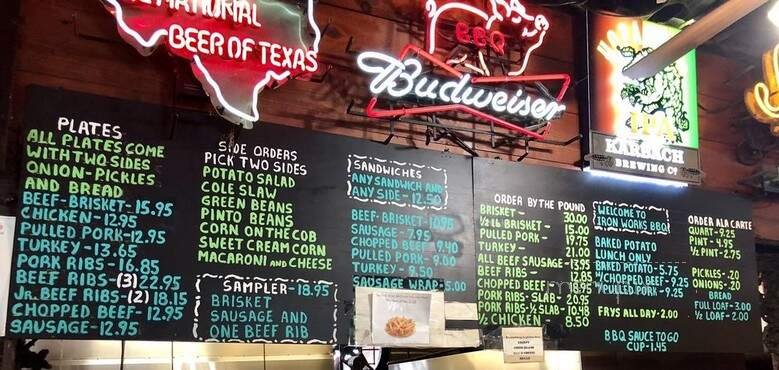 NATIONAL
BEER OF TEXAS
BBQ
Budweiser
IPA
KARBACH
BREWING CO
PLATES
ALL PLATES COME
WITH TWO SIDES
ONION-PICKLES
AND BREAD
BEEF-BRISKET-15.95
CHICKEN-12.95
PULLED PORK-12.95
TURKEY-13.65
PORK RIBS-16.85
BEEF RIBS-(3) 22.95
JR. BEEF RIBS-(2) 18.15
CHOPPED BEEF-12.95
SAUSAGE-12.95
SIDE ORDERS
PICK TWO SIDES
POTATO SALAD
COLE SLAW
GREEN BEANS
PINTO BEANS
CORN ON THE COB
SWEET CREAM CORN
MACARONI AND CHEESE
SAMPLER-18.95
BRISKET
SAUSAGE AND
ONE BEEF RIB
SANDWICHES
ANY SANDWICH AND
ANY SIDE-12.50
BEEF-BRISKET-10.95
SAUSAGE-7.95
CHOPPED BEEF-9.40
PULLED PORK-9.00
TURKEY-9.50
SAUSAGE WRAP-5.00
ORDER BY THE POUND
BRISKET- 30.00
1/2 LB BRISKET- 15.00
PULLED PORK- 19.75
TURKEY- 21.00
ALL BEEF SAUSAGE-13.95
BEEF RIBS-
CHOPPED BEEF- 18.95
PORK RIBS-SLAB- 20.95
PORK RIBS-1/2 SLAB-10.48
1/2 CHICKEN- 8.50
WELCOME TO
IRON WORKS BBQ
BAKED POTATO
LUNCH ONLY
BAKED POTATO-5.75
W/CHOPPED BEEF-9.25
"/PULLED PORK-9.25
FRYS ALL DAY-2.00
BBQ SAUCE TO GO
CUP-1.45
ORDER ALA CARTE
QUART-9.25
PINT-4.95
1/2 PINT-2.75
PICKLES-.20
ONIONS-.20
BREAD
FULL LOAF-3.00
1/2 LOAF-2.00